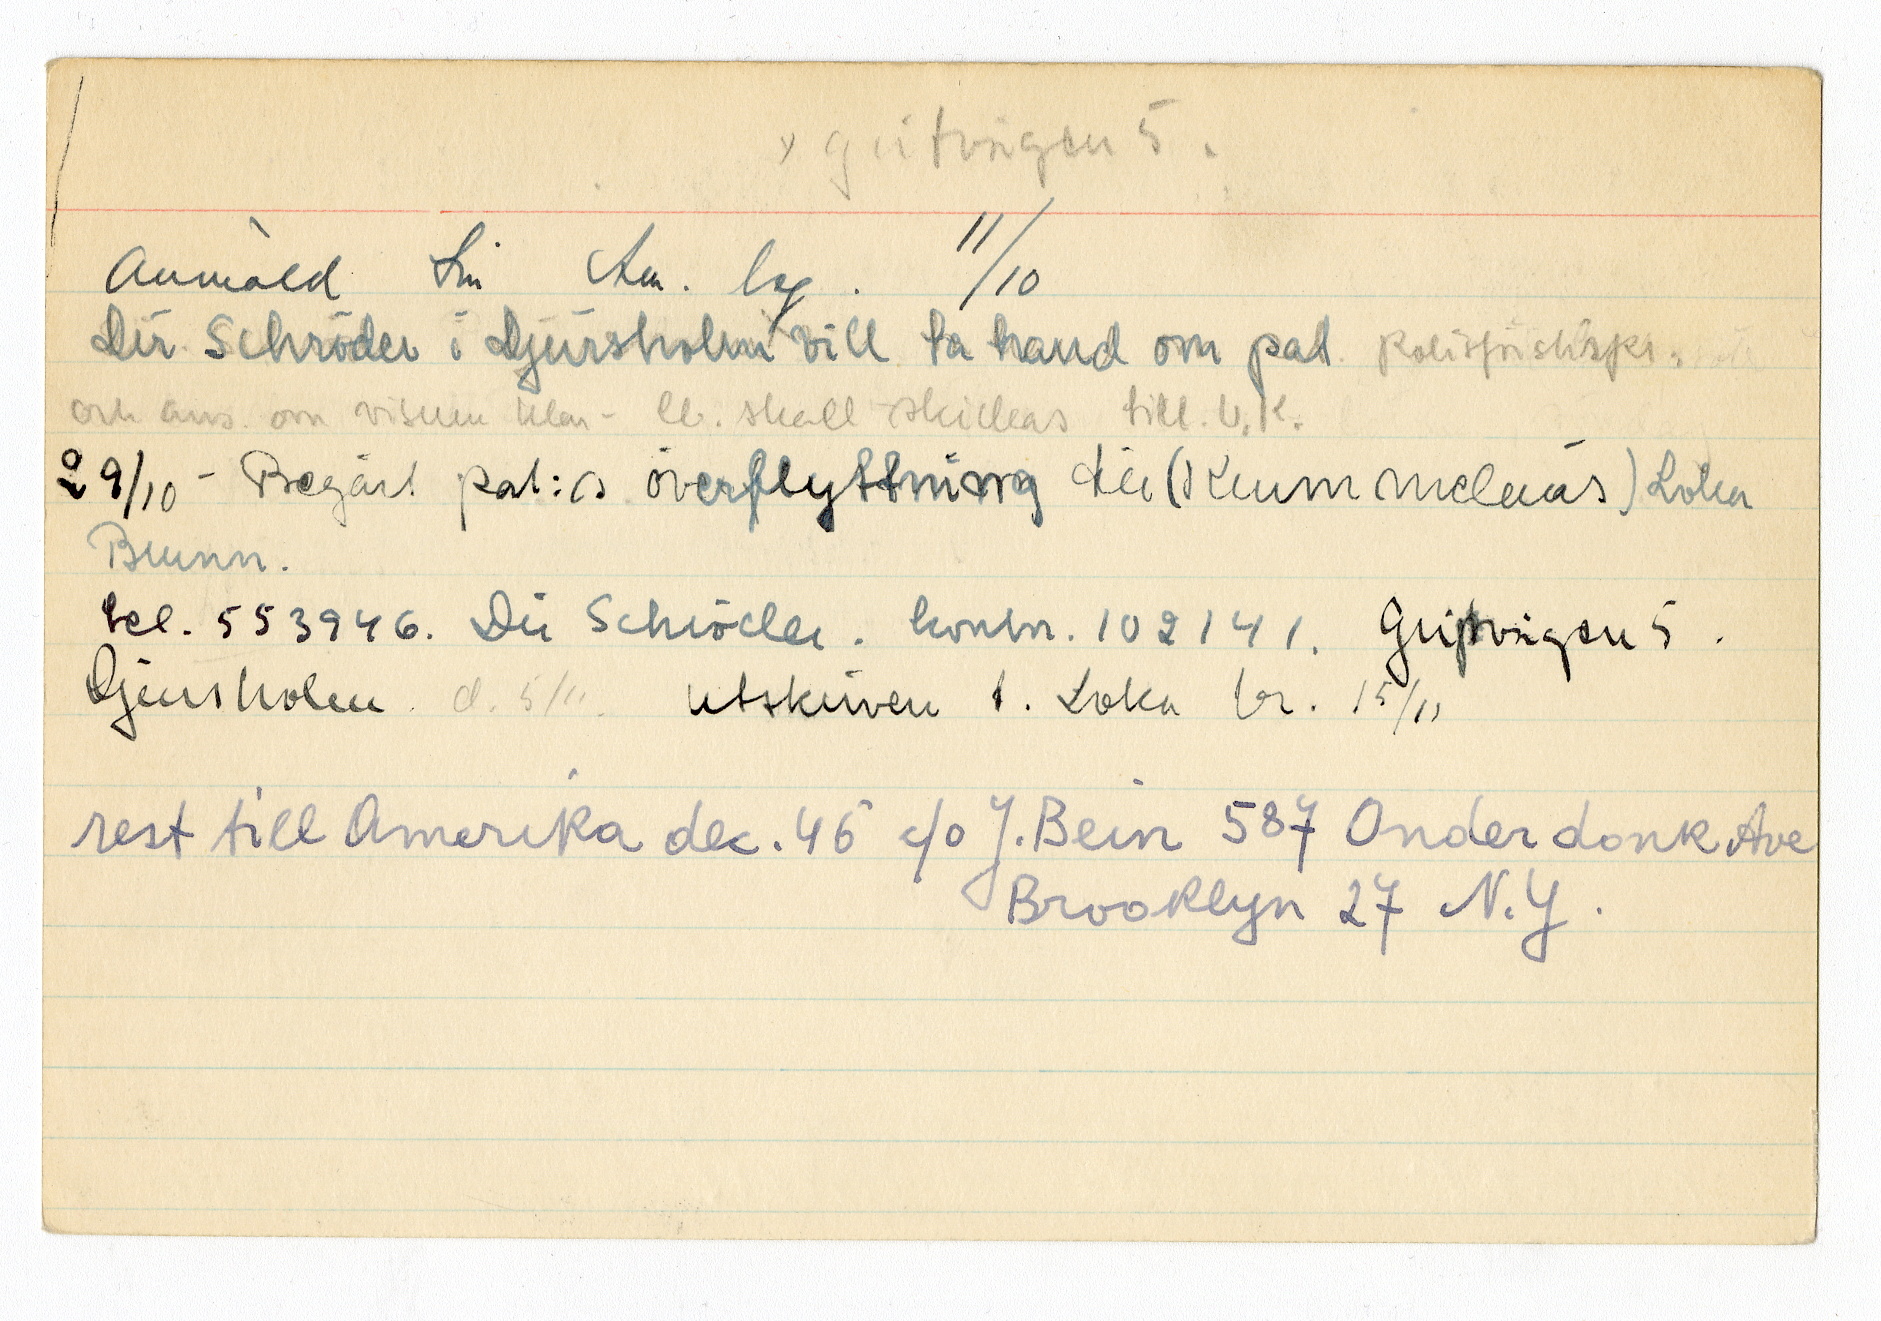 Gritvägen 5.
Anmäld till Am. leg. 11/10
Dir Schröder i Djursholm vill ta hand om pat. Polisförskåps.
och ans. om visum klar - lb. skall skickas till U.K.
29/10 - Begärt pat:s överflyttning till (Kummelnäs) Loka
Brunn.
tel. 553946. Dir Schröder. kontor. 102141. Gritvägen 5.
Djursholm. d. 5/11. utskriven t. Loka br. 15/11
rest till Amerika dec. 46 c/o J. Bein 587 Onderdonk Ave
Brooklyn 27 N.Y.